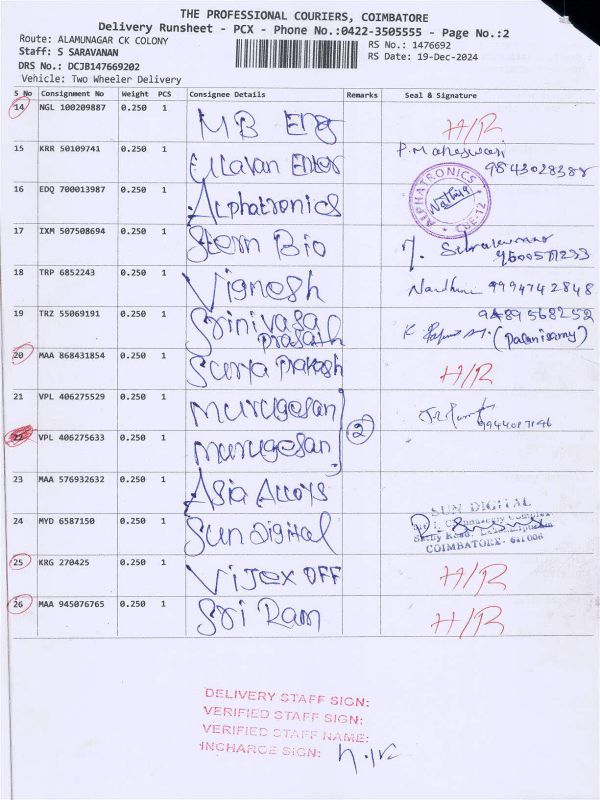 THE PROFESSIONAL COURIERS, COIMBATORE
Delivery Runsheet - PCX - Phone No.:0422-3505555 - Page No.:2
Route: ALAMUNAGAR CK COLONY
Staff: S SARAVANAN
DRS No.: DCJB147669202
Vehicle: Two Wheeler Delivery
RS No.: 1476692
RS Date: 19-Dec-2024
S No Consignment No Weight PCS Consignee Details Remarks Seal & Signature
14 NGL 100209887 0.250 1 MB Eng H/R
15 KRR 50109741 0.250 1 Ellavan Enter P.Maheswari
9843028388
16 EDQ 700013987 0.250 1 Alphatronics ALPHATRONICS
CBE-12
17 IXM 507508694 0.250 1 Stern Bio
18 TRP 6852243 0.250 1 Vignesh Nandhini 9994742848
19 TRZ 55069191 0.250 1 Srinivasa
Prasath
9489568252
(Palanisamy)
20 MAA 868431854 0.250 1 Surya Prakash H/R
21 VPL 406275529 0.250 1 Murugesan
2
22 VPL 406275633 0.250 1 Murugesan
23 MAA 576932632 0.250 1 Asia Alloys
24 MYD 6587150 0.250 1 Sun Digital SUN DIGITAL
COIMBATORE - 641006
25 KRG 270425 0.250 1 Vijex OFF H/R
26 MAA 945076765 0.250 1 Sri Ram H/R
DELIVERY STAFF SIGN:
VERIFIED STAFF SIGN:
VERIFIED STAFF NAME:
INCHARGE SIGN: